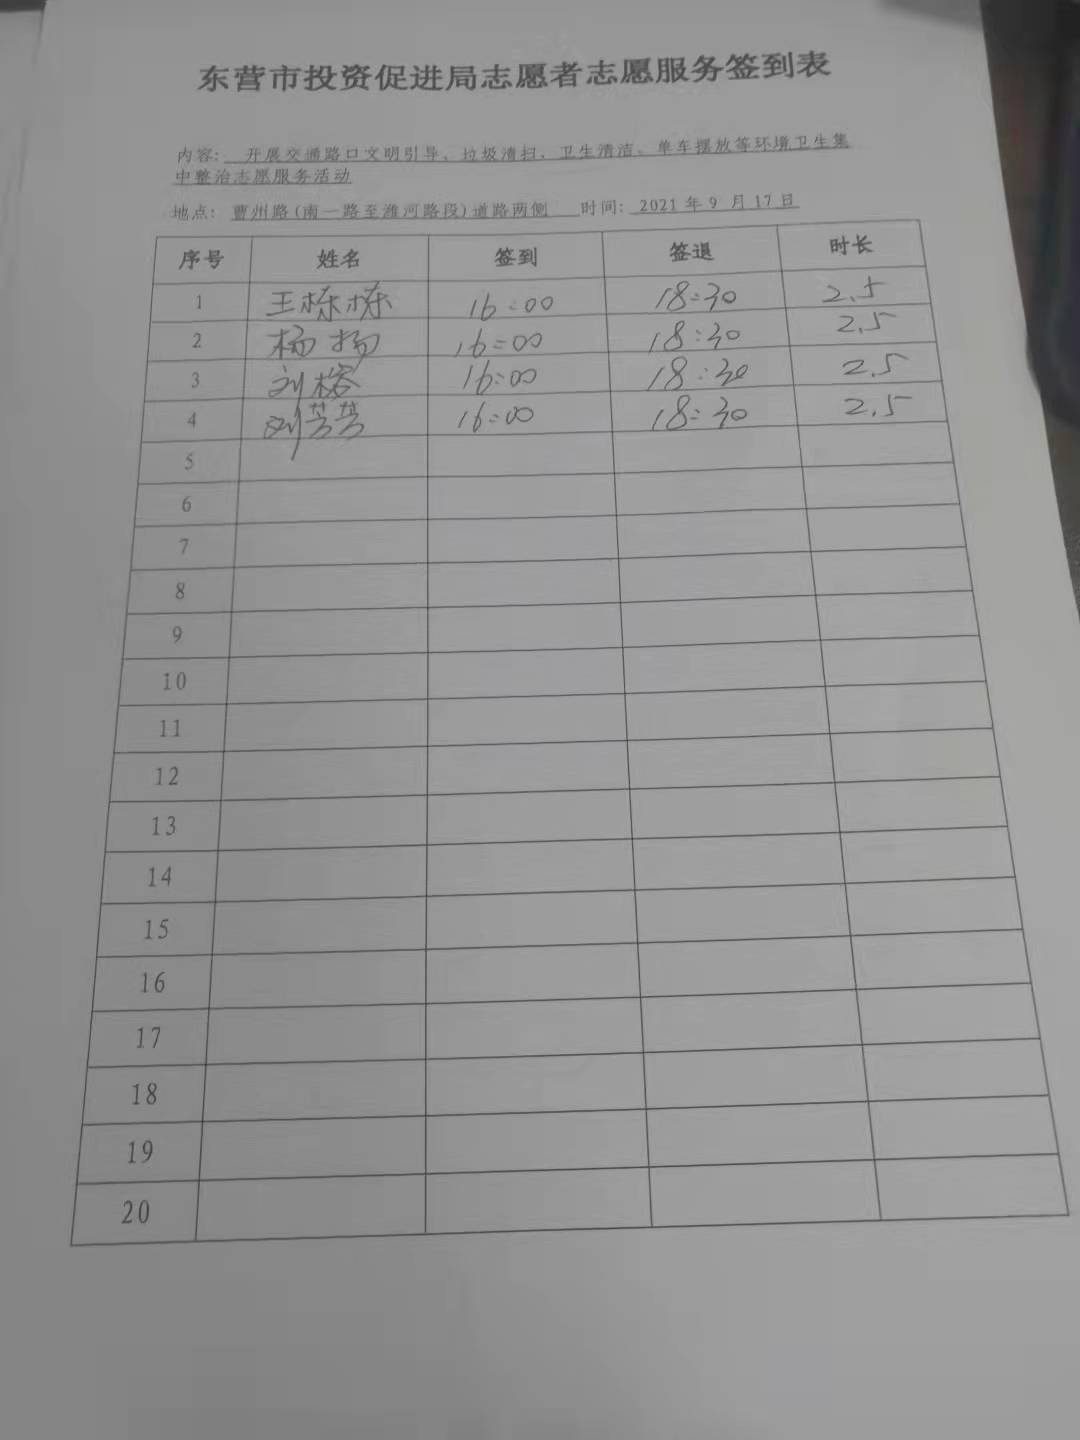 东营市投资促进局志愿者志愿服务签到表
内容: 开展交通路口文明引导、垃圾清扫、卫生清洁、单车摆放等环境卫生集
中整治志愿服务活动
地点: 曹州路(南一路至潍河路段)道路两侧 时间: 2021 年 9 月 17 日
序号 姓名 签到 签退 时长
1 王栋栋 16:00 18:30 2.5
2 杨扬 16:00 18:30 2.5
3 刘榕 16:00 18:30 2.5
4 刘芳芳 16:00 18:30 2.5
5
6
7
8
9
10
11
12
13
14
15
16
17
18
19
20